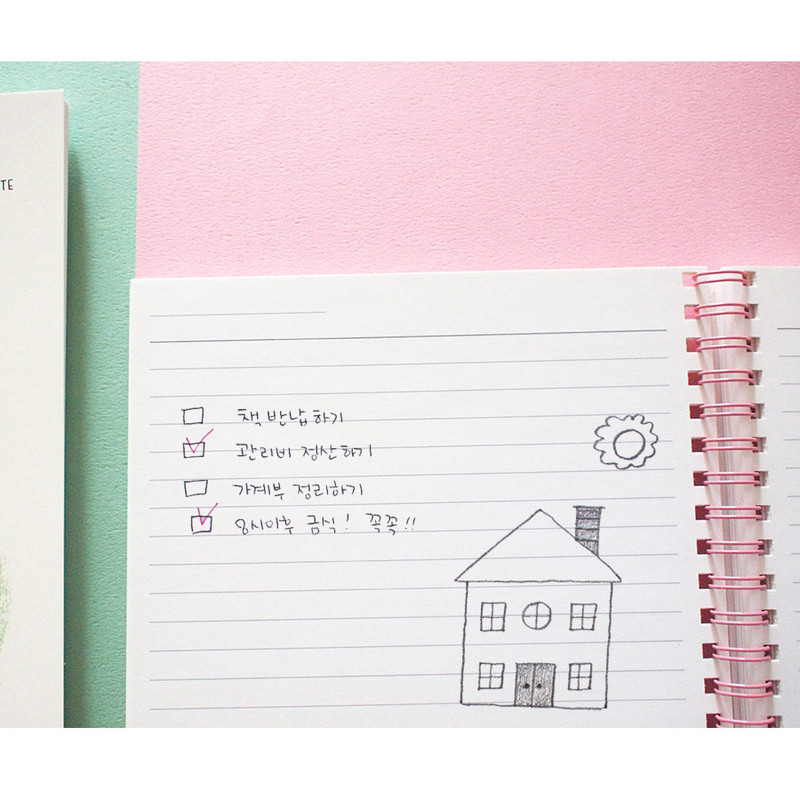 TE
책 반납하기
관리비 정산하기
가계부 정리하기
8시이후 금식! 꼭꼭!!